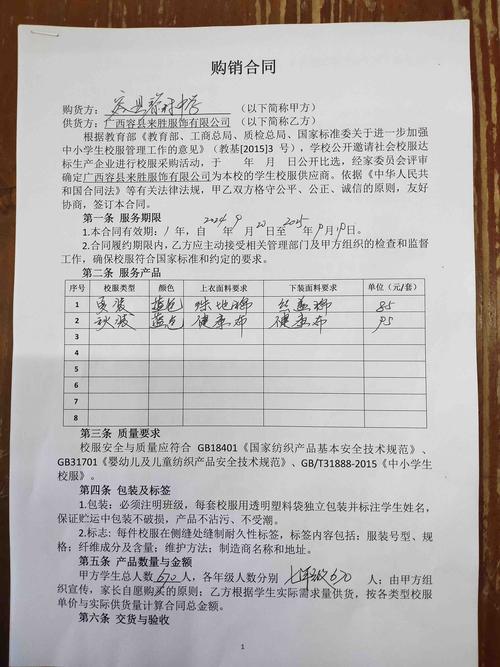 购销合同
购货方：容县 中学 （以下简称甲方）
供货方：广西容县来胜服饰有限公司（以下简称乙方）
根据教育部《教育部、工商总局、质检总局、国家标准委关于进一步加强
中小学生校服管理工作的意见》（教基[2015]3 号），学校公开邀请社会校服达
标生产企业进行校服采购活动，于 年 月 日公开比选，经家委员会评审
确定广西容县来胜服饰有限公司为本校的学生校服供应商。依据《中华人民共
和国合同法》等有关法律法规，甲乙双方格守公平、公正、诚信的原则，友好
协商，签订本合同。
第一条 服务期限
1.本合同有效期：1年，自2024年9月20日至2025年9月19日。
2.合同履约期限内,乙方应主动接受相关管理部门及甲方组织的检查和监督
工作，确保校服符合国家标准和约定的要求。
第二条 服务产品
序号 校服类型 颜色 上衣面料要求 下装面料要求 单位（元/套）
1 夏装 蓝色 珠地棉 丝盖棉 85
2 秋装 蓝色 健康布 健康布 95
3
4
5
6
7
8
第三条 质量要求
校服安全与质量应符合 GB18401《国家纺织产品基本安全技术规范》、
GB31701《婴幼儿及儿童纺织产品安全技术规范》、GB/T31888-2015《中小学生
校服》。
第四条 包装及标签
1.包装：必须注明班级，每套校服用透明塑料袋独立包装并标注学生姓名，
保证贮运中包装不破损，产品不沾污、不受潮。
2.标志: 每件校服在侧缝处缝制耐久性标签，标签内容包括：服装号型、规
格；纤维成分及含量；维护方法；制造商名称和地址。
第五条 产品数量与金额
甲方学生总人数670人，各年级人数分别 七年级670 人；由甲方组
织宣传，家长自愿购买的原则；乙方根据学生实际需求量供货，按各类型校服
单价与实际供货量计算合同总金额。
第六条 交货与验收
1